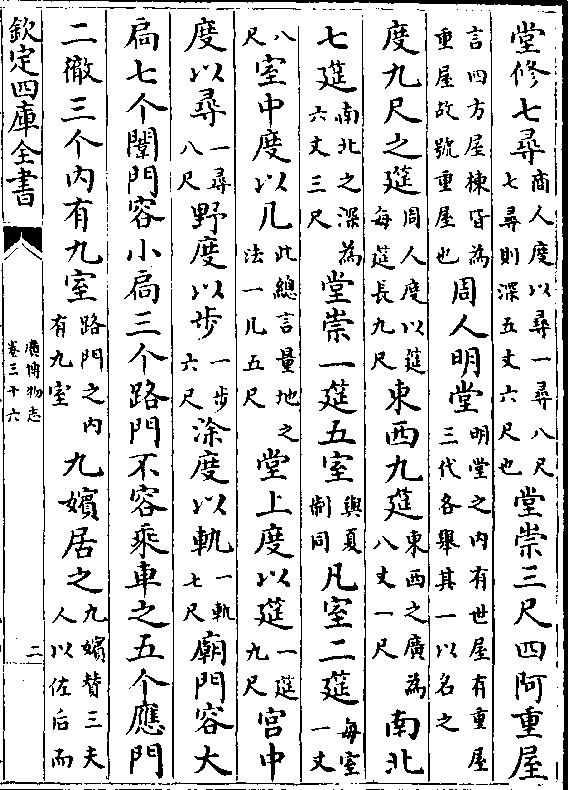 堂修七尋商人度以尋一尋八尺七尋則深五丈六尺也堂崇三尺四阿重屋
言四方屋棟皆為重屋故號重屋也周人明堂明堂之內有世屋有重屋三代各舉其一以名之
度九尺之筵周人度以筵每筵長九尺東西九筵東西之廣為八丈一尺南北
七筵南北之深為六丈三尺堂崇一筵五室與夏制同凡室二筵每室一丈
八尺室中度以几此總言量地之法一几五尺堂上度以筵一筵九尺宮中
度以尋一尋八尺野度以步一步六尺涂度以軌一軌七尺廟門容大
扃七个闈門容小扃三个路門不容乘車之五个應門
二徹三个內有九室路門之內有九室九嬪居之九嬪賛三夫人以佐后而
欽定四庫全書
廣博物志
卷三十六
二